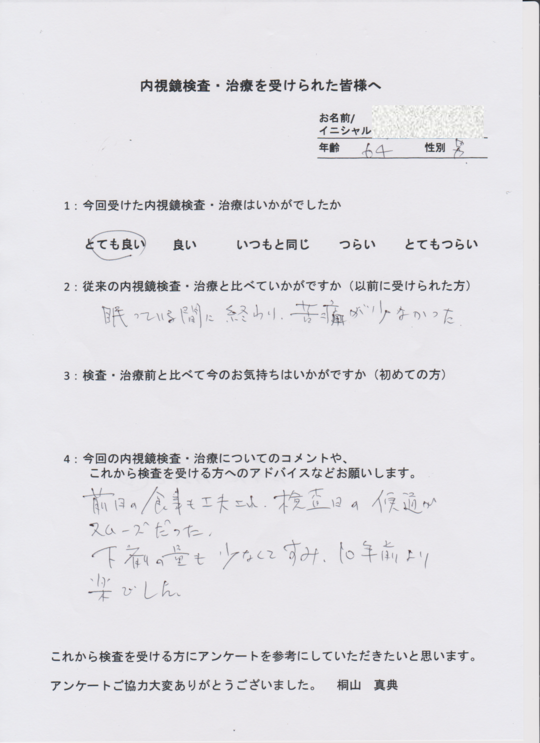 内視鏡検査・治療を受けられた皆様へ
お名前/
イニシャル
年齢 64 性別 男
1：今回受けた内視鏡検査・治療はいかがでしたか
とても良い 良い いつもと同じ つらい とてもつらい
2：従来の内視鏡検査・治療と比べていかがですか（以前に受けられた方）
眠っている間に終わり、苦痛が少なかった
3：検査・治療前と比べて今のお気持ちはいかがですか（初めての方）
4：今回の内視鏡検査・治療についてのコメントや、
これから検査を受ける方へのアドバイスなどお願いします。
前日の食事も工夫され、検査日の便通が
スムーズだった。
下剤の量も少なくてすみ、10年前より
楽でした。
これから検査を受ける方にアンケートを参考にしていただきたいと思います。
アンケートご協力大変ありがとうございました。 桐山 真典